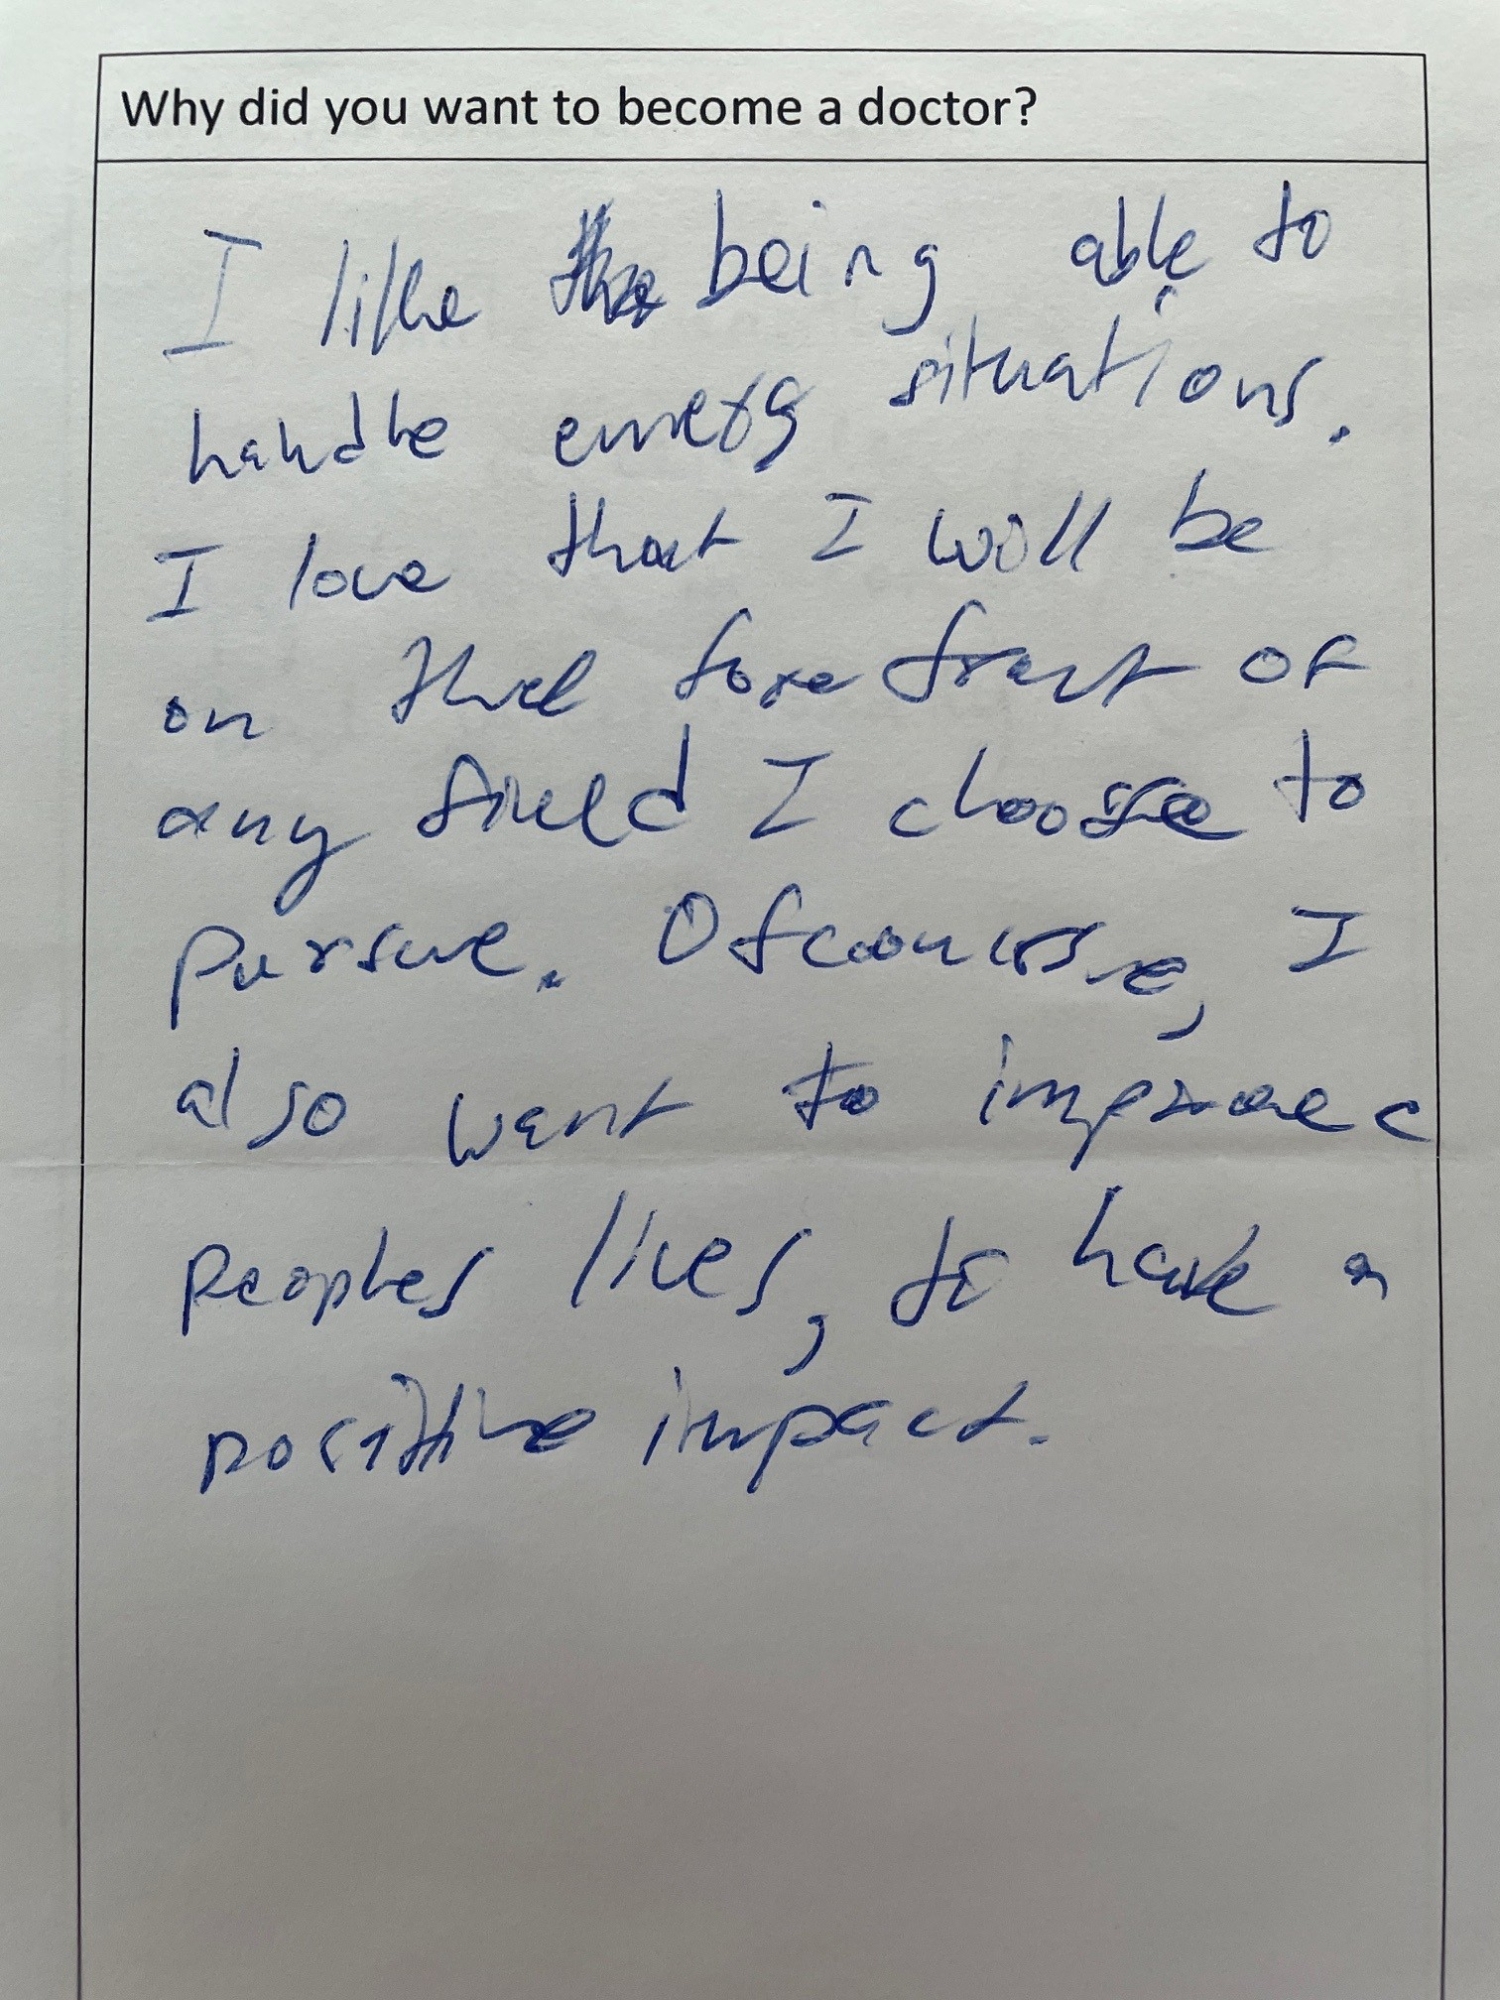 Why did you want to become a doctor?
I like the being able to
handle emerg situations.
I love that I will be
on the forefront of
any field I choose to
pursue. Ofcourse, I
also want to improve
peoples lives, to have a
positive impact.